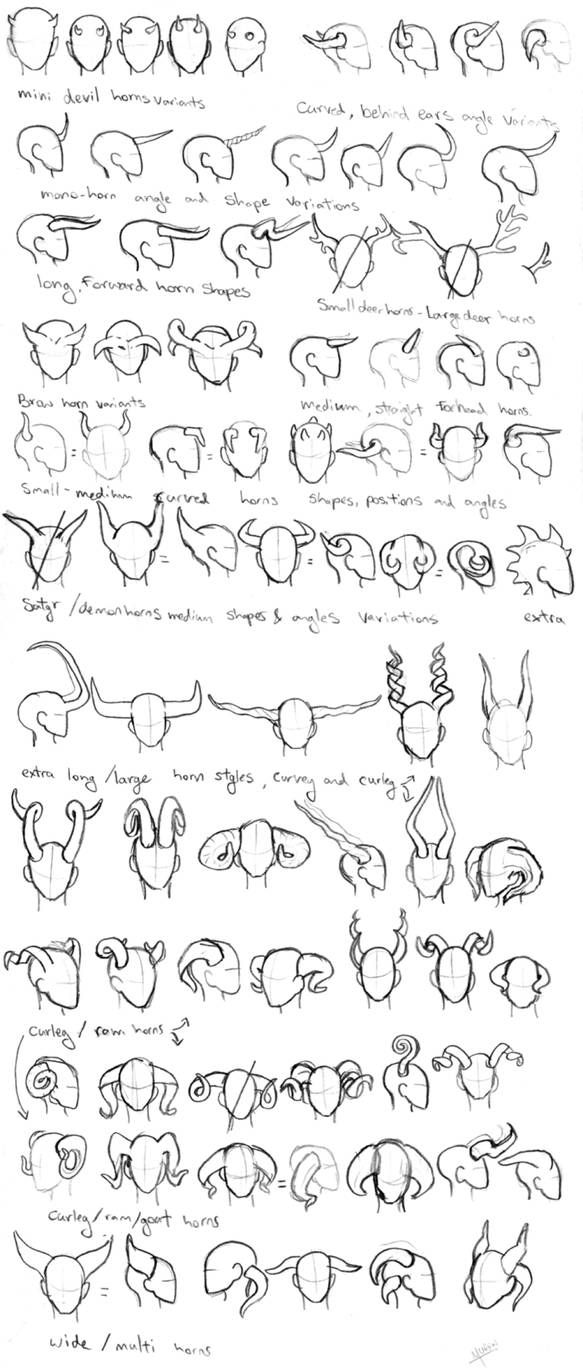 mini devil horns variants
Curved, behind ears angle variants
mono-horn angle and shape variations
long, forward horn shapes
Small deer horns - Large deer horns
Brow horn variants
medium, straight forhead horns.
Small-medium curved horns shapes, positions and angles
Satyr/demonhorns medium shapes & angles variations
extra
extra long/large horn styles, curvey and curley
Curley/ram horns
Curley/ram/goat horns
wide/multi horns